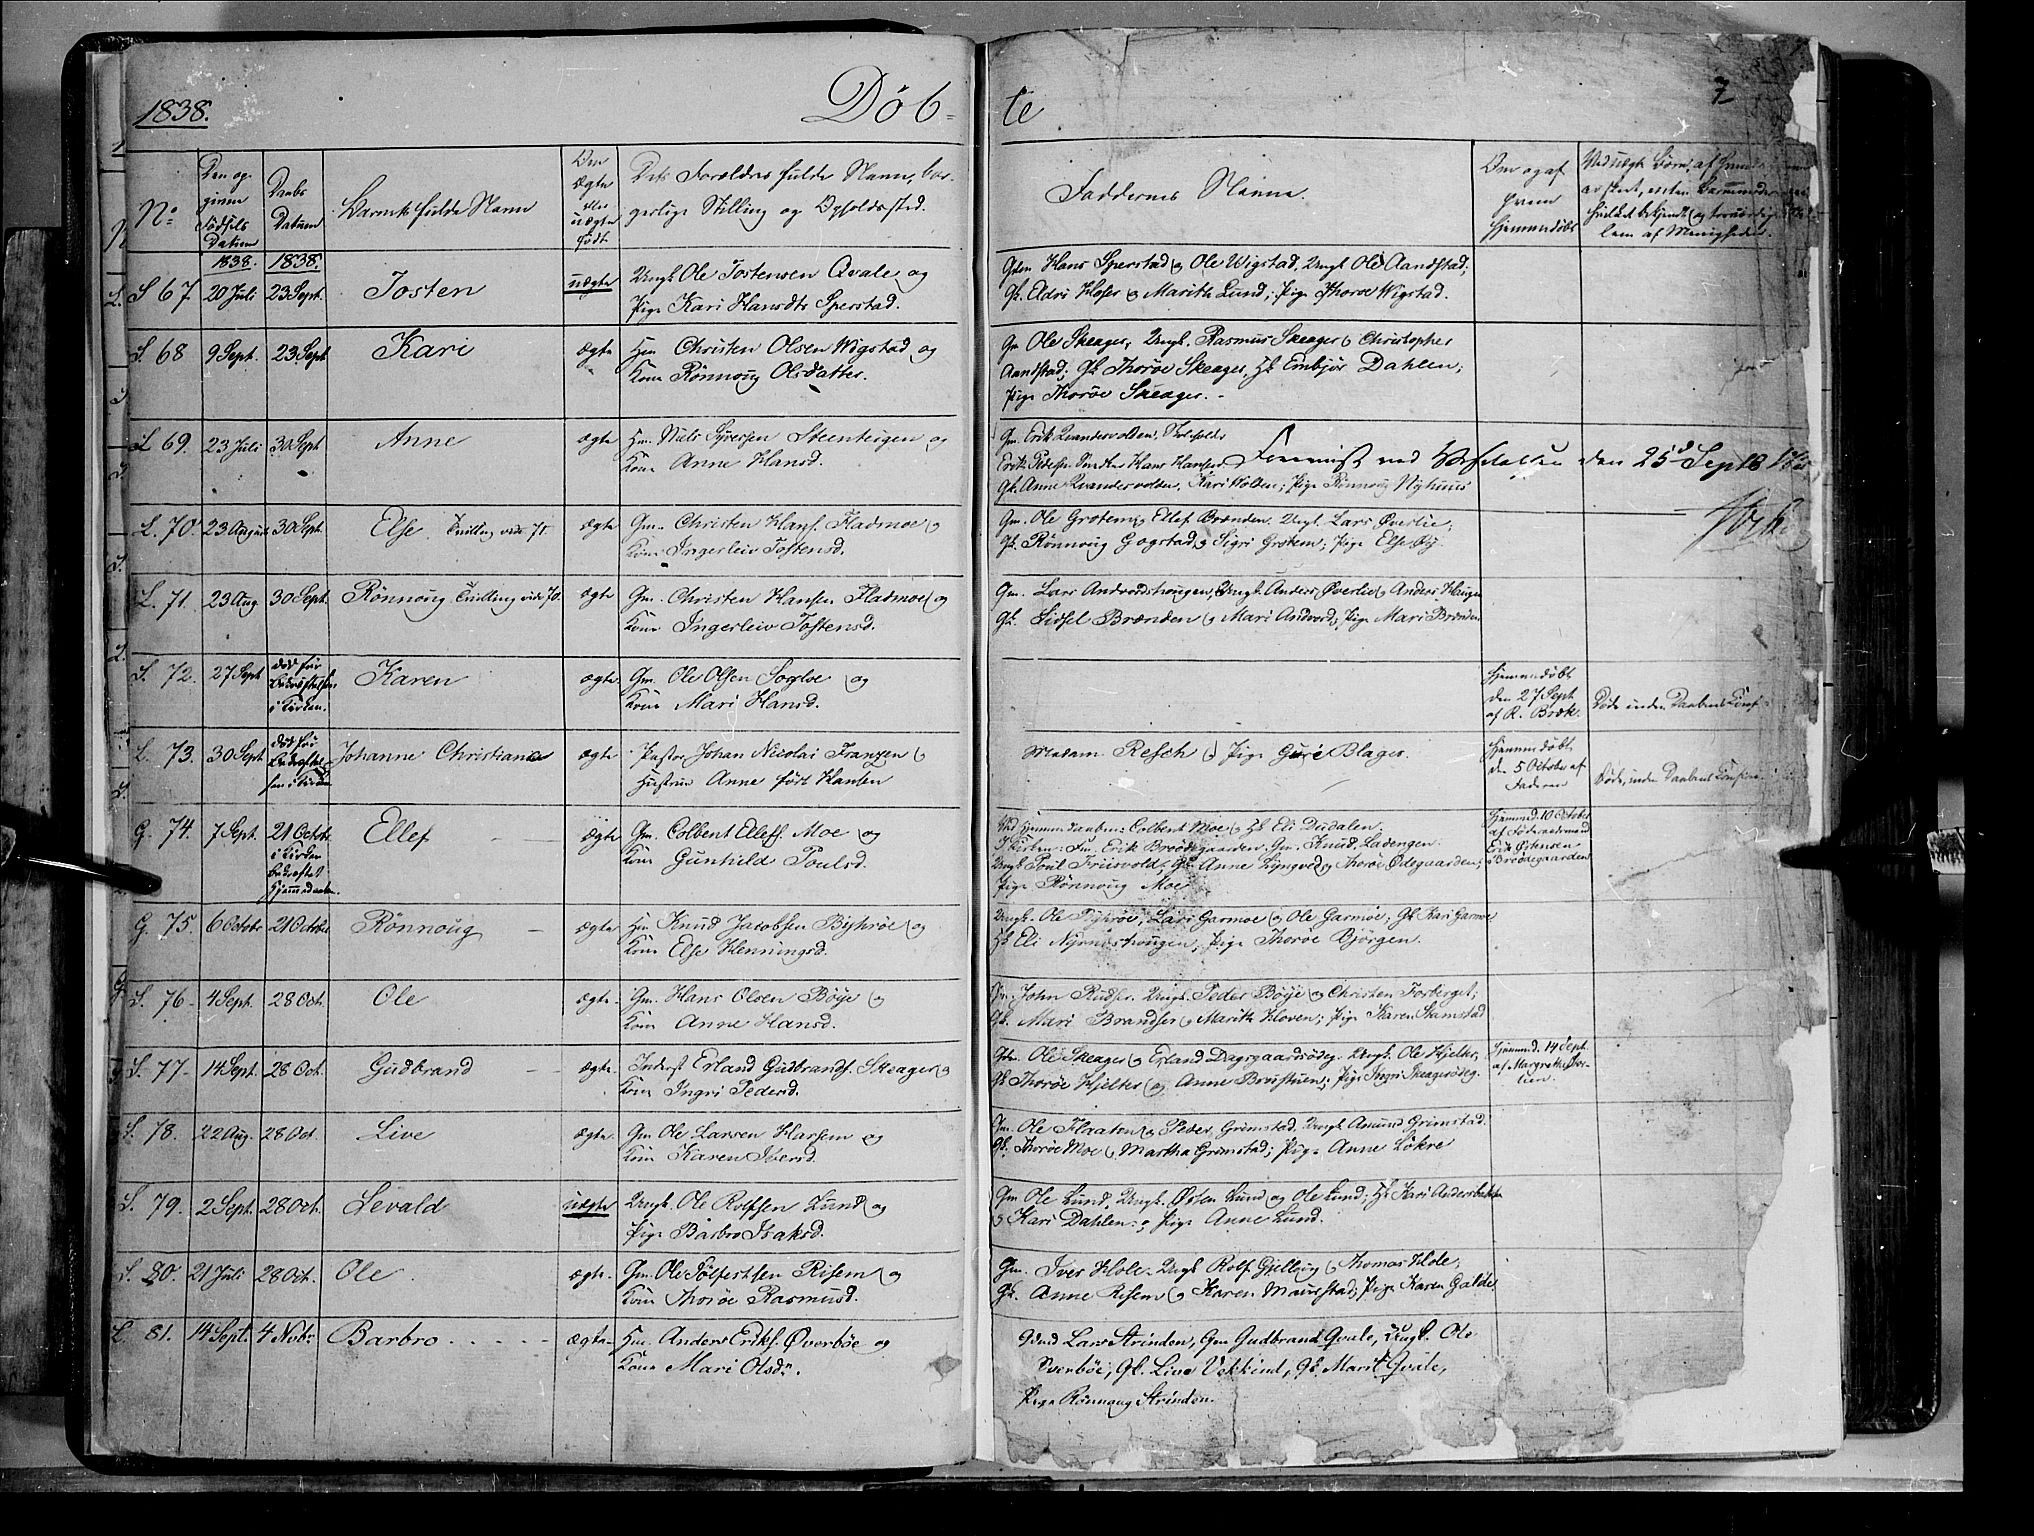 1838.
Døb-
te
7
No
Den op-
given
Fødsels
Datum
Daabs
Datum
Barnets fulde Navn
Om
ægte
eller
uægte
født
Dets Forældres fulde Navn, bor-
gerlige Stilling og Opholdssted.
Faddernes Navne.
Om og af
hvem
hjemmedøbt
lem af Menigheden.
1838. 1838.
S 67 20 Juli 23 Sept. Josten uægte Ungk. Ole Jostensen Qvale og
Pige Kari Hansdtr Sperstad.
Gdm Hans Sperstad og Ole Wigstad, Ungk. Ole Aandstad;
Gk. Eldri Kloser og Marith Lund; Pige Thoroe Wigstad.
S. 68 9 Sept. 23 Sept Kari ægte Hm Christen Olsen Wigstad og
Kone Rønnoug Olsdatter.
Gm Ole Skeager, Ungk. Rasmus Skeager og Christopher
Aandstad; Gk Thoroe Skeager, Hk Embjør Dahlen;
Pige Thoroe Skeager.
L 69. 23 Juli 30 Sept Anne ægte Hm. Niels Syversen Steenteigen og
Kone Anne Hansd.
Gm. Erik Qvandersvolden,
Erik Pedersen Hans Hansen
Gk. Anne Qvandersvolden, Kari Holden; Pige Rønnoug Nyhuus
den 25d Sept 18
L. 70. 23 August 30 Sept. Else Tvilling vide 71. ægte Gm. Christen Hans. Fladmoe og
Kone Ingerleiv Tostensd.
Gm. Ole Grotem og Ellef Brænden. Ungk. Lars Øverlie;
Gk. Rønnoug Gogstad og Sigri Grotem; Pige Else Øy.
L. 71. 23 Aug. 30 Sept. Rønnoug Tvilling vide 70. ægte Gm. Christen Hansen Fladmoe og
Kone Ingerleiv Tostensd.
Gm. Lars Andvordshougen, Ungk. Anders Øverlie og Anders Haugen
Gk. Sidsel Brænden og Mari Andvord; Pige Mari Brænden
S. 72. 27 Sept død før
Bekræftelsen
i Kirken. Karen ægte Gm. Ole Olsen Sogloe og
Kone Mari Hansd.
Hjemmedøbt
den 27 Sept
af R. Bræk.
Døde inden Daabens Conf
L. 73. 30 Sept død før
Bekræftel
sen i Kirken Johanne Christiane ægte Pastor Johan Nicolai Franzen og
Hustrue Anne født Hansen
Madam Resch og Pige Guri Blager.
Hjemmedøbt
den 5 October af
Faderen
Døde, inden Daabens Confirm
G. 74. 7 Sept. 21 Octobr
i Kirken
bekræftet
Hjemmedaaben. Ellef ægte Gm. Colbent Ellefs. Moe og
Kone Gunhild Poulsd.
Ved Hjemmedaaben: Colbent Moe og Hk Eli Dudalen
I Kirken: Hm. Erik Brødegaarden. Gm. Knud Ladengen.
Ungk Poul Friisvold; Gk Anne Lyngved og Thoroe Ødegaarden;
Pige Rønnoug Moe
Hjemmd. 10 October
af
Erik Østensen
Brødegaarden
G. 75. 6 Octobr 21 Octobr Rønnoug ægte Hm Knud Jacobsen Byhrøe og
Kone Else Henningsd.
Ungk. Ole Byhrøe, Lars Garmoe og Ole Garmoe; Gk Kari Garmoe
Hk Eli Nyrnæshougen; Pige Thoroe Bjørgen.
S. 76. 4 Sept. 28 Oct. Ole ægte Gm. Hans Olsen Bøye og
Kone Anne Hansd.
Gm. John Rudser. Ungk. Peder Bøye og Christen Forberget;
Gk. Mari Brandser og Marith Kloven; Pige Karen Stamstad
S. 77 14 Sept. 28 Oct. Gudbrand ægte Inderst Erland Gudbrands. Skeager og
Kone Ingri Pedersd.
Gdm. Ole Skeager og Erland Dagsgaardsødeg. Ungk. Ole Hjelter;
Gk Thoroe Hjelter og Anne Brustuen; Pige Ingri Skeagerødeg.
Hjemmd. 14 Sept.
af Margrethe
lien.
S. 78. 22 Aug. 28 Oct. Live ægte Gm Ole Larsen Harsem og
Kone Karen Iversd.
Gm. Ole Flaaten og Peder Grimstad. Ungk Amund Grimstad.
Gk. Thoroe Moe og Martha Grimstad; Pige Anne Løkre
S. 79. 2 Sept. 28 Oct. Levald uægte Ungk. Ole Rolfsen Lund og
Pige Barbro Isaksd.
Gm Ole Lund. Ungk. Østen Lund og Ole Lund; Hk Kari
og Kari Dahlen; Pige Anne Lund.
S. 80. 21 Juli 28 Oct. Ole ægte Gm. Ole Tølfestsen Risem og
Kone Thoroe Rasmusd.
Gm. Iver Hole. Ungk Rolf Gjelleug og Thomas Hole;
Gk. Anne Risem og Karen Maurstad; Pige Karen Galde
L 81. 14 Sept. 4 Novbr Barbro ægte Hm. Anders Eriks. Øverbøe og
Kone Mari Olsdr.
Gdmd Lars Strinden, Gm Gudbrand Qvale, Ungk. Ole
Sverbøe; Gk. Live Vekkind, Gk Marit Qvale,
Pige Rønnoug Strinden.